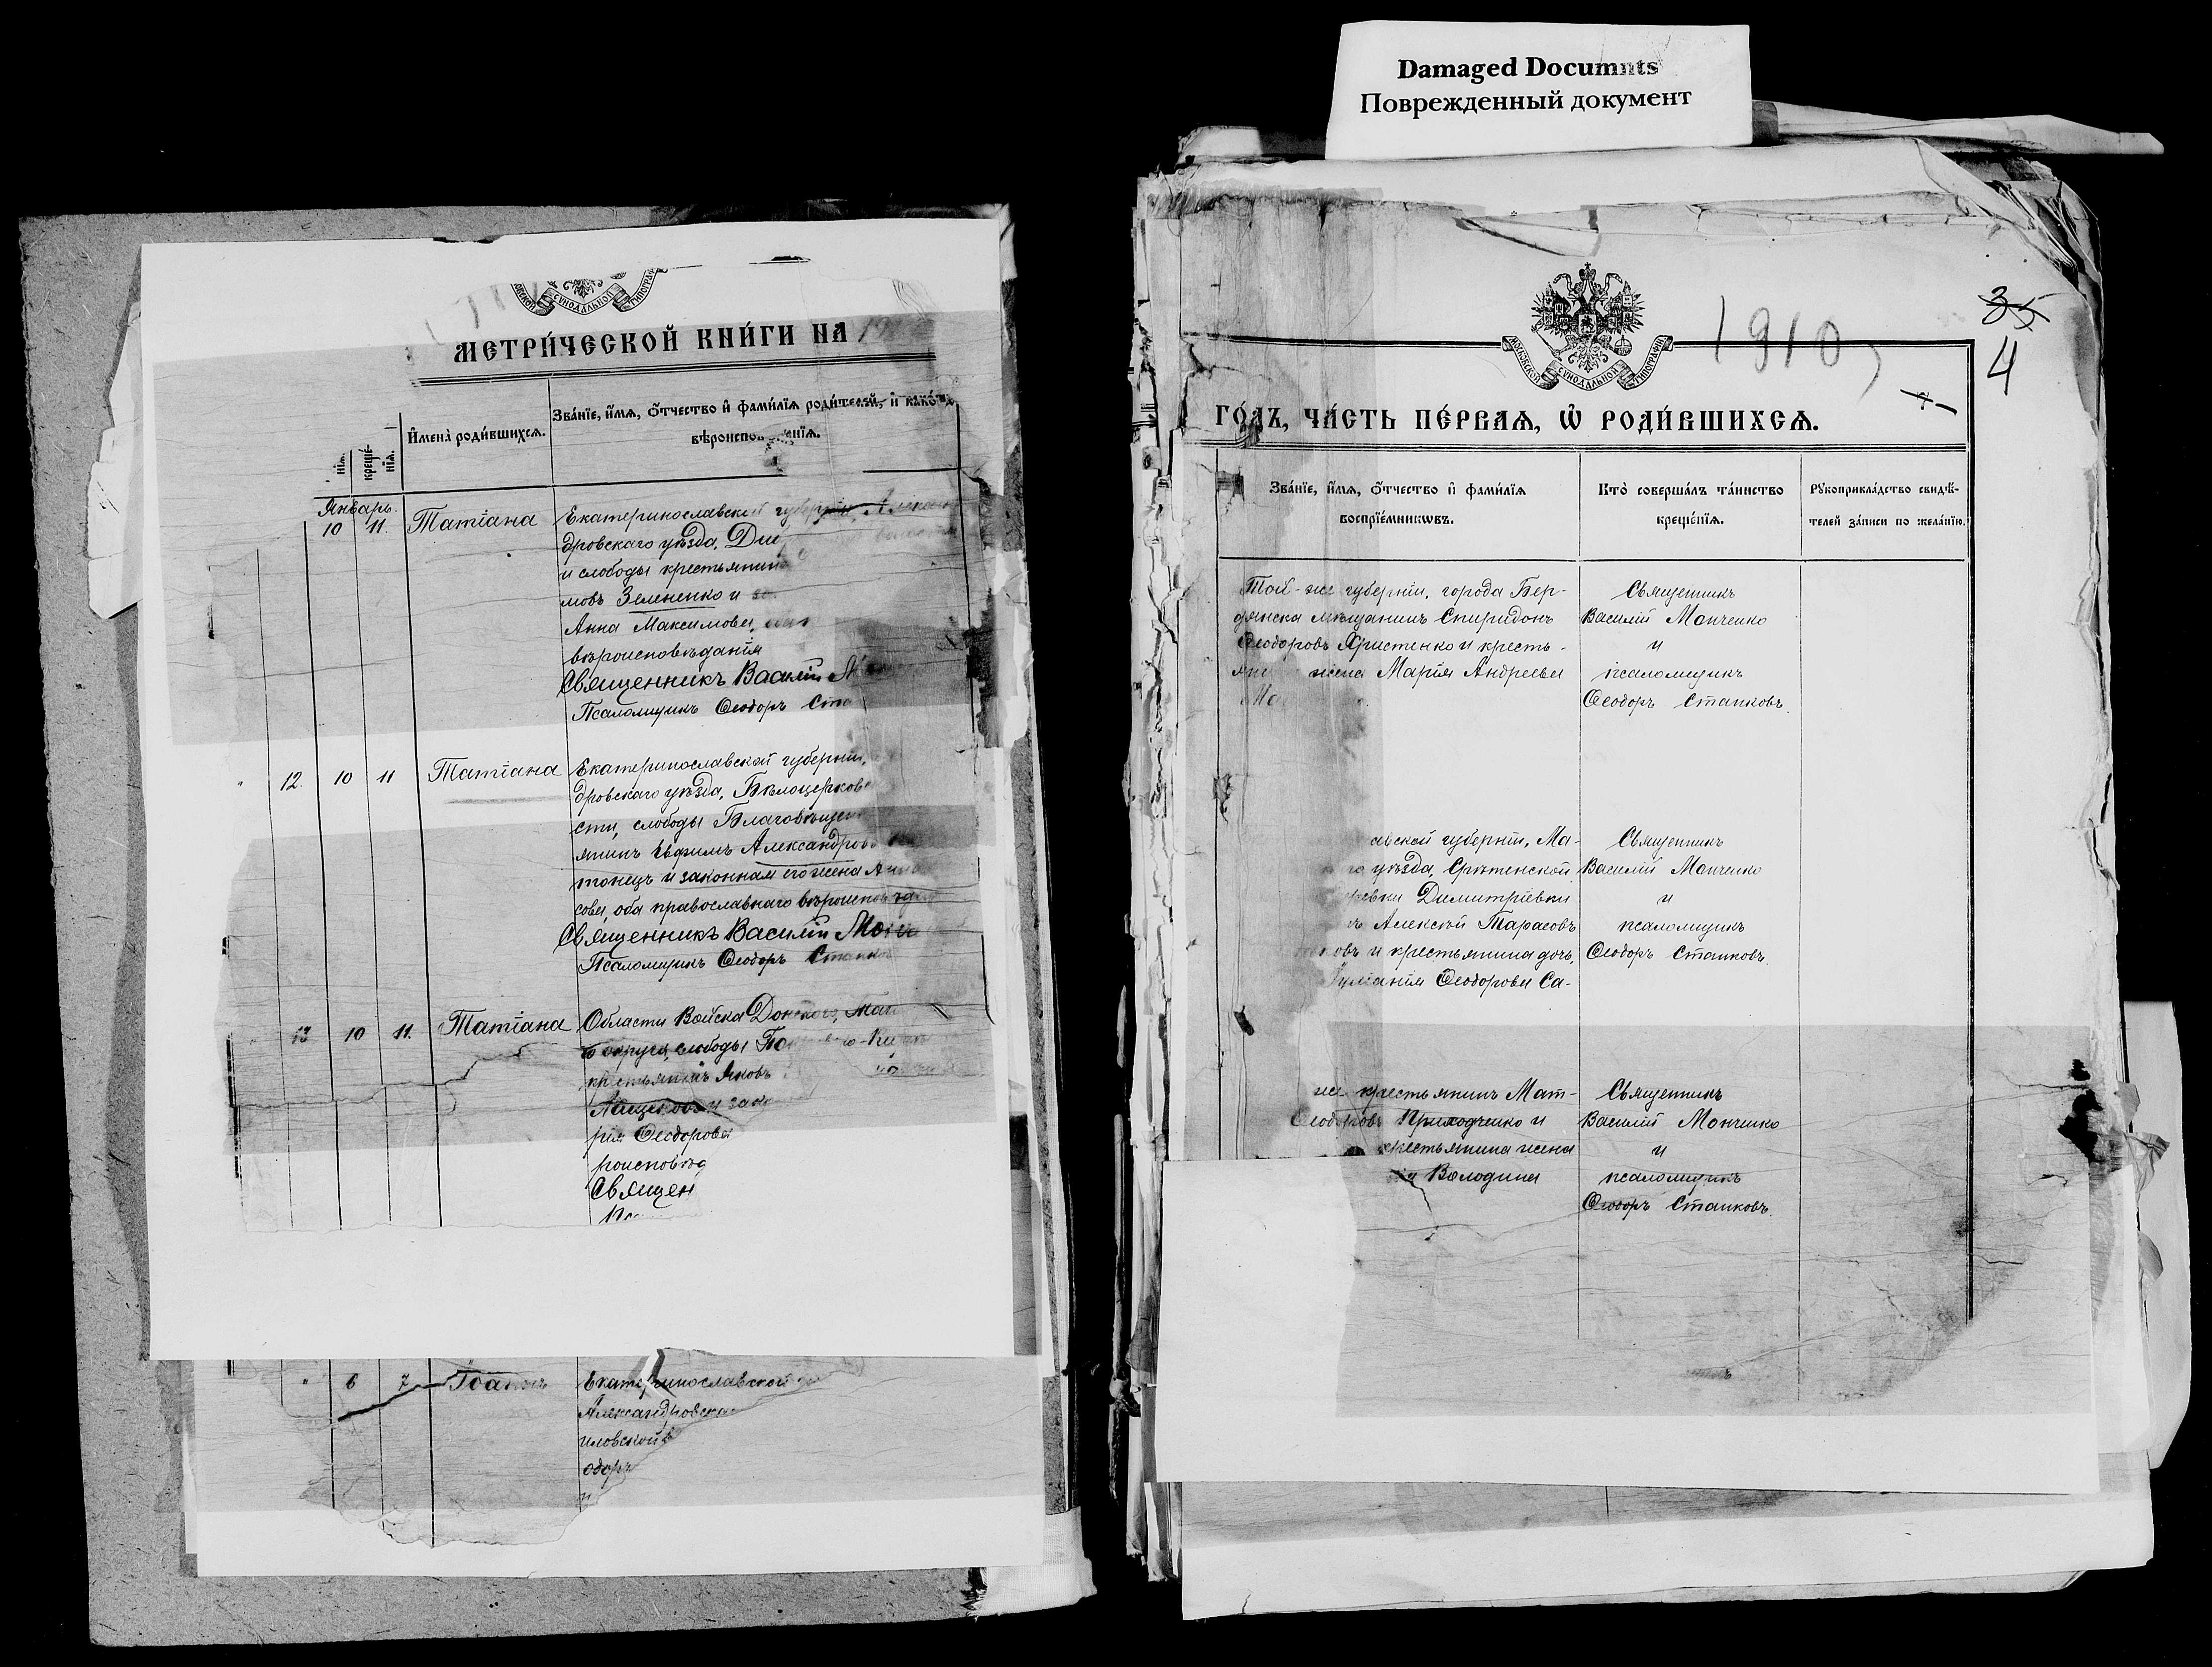 Damaged Documnts
Поврежденный документ
СѴНОДАЛЬНОЙ ТИПОГРАФІИ
МЕТРИ́ЧЕСКОЙ КНИ́ГИ НА 19
креще́нїѧ.
И҆мена̀ роди́вшихсѧ.
Зва́нїе, и҆́мѧ, ѻ҆́тчество и҆ фами́лїѧ роди́телей, и҆ како́гѡ
Январь.
10 11. Татіана
Екатеринославской губерніи, Алекса
дровскаго уѣзда,
и слободы крестьянин
мовъ Зелененко и
Анна Максимова,
вѣроисповѣданія
Священникъ Василій М
Псаломщикъ Ѳеодоръ Ста
" 12. 10 11 Татіана
Екатеринославской губерніи,
дровскаго уѣзда, Бѣлоцерков
сти, слободы Благовѣщен
янинъ Евфимъ Александров
тонецъ и законная его жена Анна
сова, оба православнаго вѣроисповѣд
Священникъ Василій Мо
Псаломщикъ Ѳеодоръ Станко
13 10 11. Татіана
Области Войска Донского,
округа, слободы
крестьянинъ Яковъ
и зак
рія Ѳеодорова
роисповѣд
Священ
" 6 7 Іоаннъ
Екатеринославской
Александровск
иловской
одоръ
и
35
4
1910
МОСКОВСКОЙ СѴНОДАЛЬНОЙ ТИПОГРАФІИ
ГО́ДЪ, ЧА́СТЬ ПЕ́РВАѦ, Ѡ҆ РОДИ́ВШИХСѦ.
Зва́нїе, и҆́мѧ, ѻ҆́тчество и҆ фами́лїѧ
воспрїе́мникѡвъ.
Кто̀ соверша́лъ та́инство
креще́нїѧ.
Рꙋкоприкла́дство свидѣ́-
телей за́писи по жела́нїю.
Той-же губерніи, города Бер-
дянска мѣщанинъ Спиридонъ
Ѳеодоровъ Христенко и кресть-
жена Марія Андреева
Священникъ
Василій Монченко
и
псаломщикъ
Ѳеодоръ Станковъ.
авской губерніи, Ма-
го уѣзда, Срѣтенской
ревни Димитріевки
ъ Алексѣй Тарасовъ
ковъ и крестьянина дочь,
Ѳеодорова Са-
Священникъ
Василій Монченко
и
псаломщикъ
Ѳеодоръ Станковъ.
же крестьянинъ Мат-
Ѳеодоровъ Приходченко и
крестьянина жена
Володина
Священникъ
Василій Монченко
и
псаломщикъ
Ѳеодоръ Станковъ.